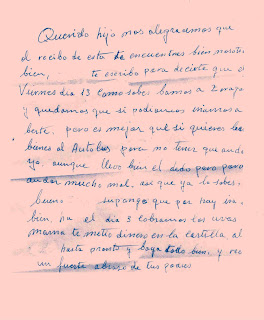 Querido hijo nos alegraremos que
al recibo de esta te encuentres bien nosotros
bien, te escribo para decirte que el
Viernes dia 13 como sabes bamos a Zarago
y quedamos que si podiamos
berte, pero es mejor que si quieres
bienes al Autobus para no tener que andar
yo, aunque llevo bien el pero
andar mucho mal, asi que ya lo sabes,
bueno supongo que por hay ira
bien, ya el dia 3 cobramos las uvas
mama te metio dinero en la cartilla al
hasta pronto y haga todo bien, y
un fuerte abrazo de tus padres